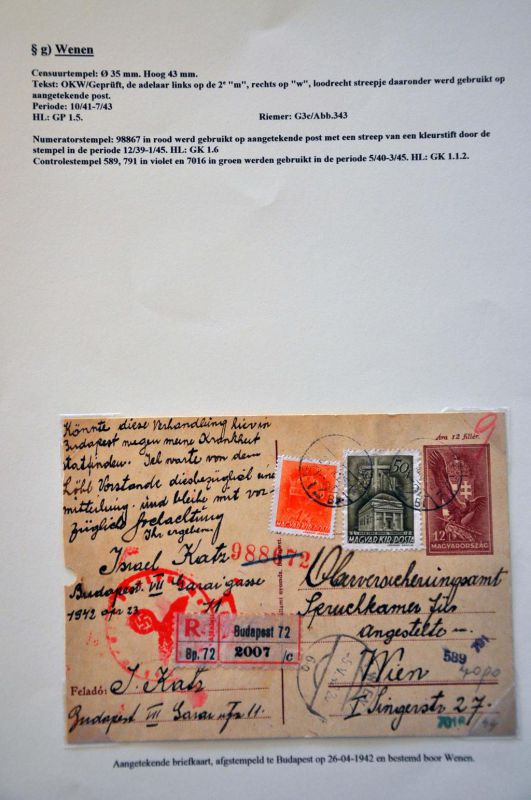 § g) Wenen
Censuurtempel: Ø 35 mm. Hoog 43 mm.
Tekst: OKW/Geprüft, de adelaar links op de 2e "m", rechts op "w", loodrecht streepje daaronder werd gebruikt op
aangetekende post.
Periode: 10/41-7/43
HL: GP 1.5. Riemer: G3c/Abb.343
Numeratorstempel: 98867 in rood werd gebruikt op aangetekende post met een streep van een kleurstift door de
stempel in de periode 12/39-1/45. HL: GK 1.6
Controlestempel 589, 791 in violet en 7016 in groen werden gebruikt in de periode 5/40-3/45. HL: GK 1.1.2.
Könnte diese Verhandlung hier in
Budapest wegen meine Krankheit
statfinden. Ich warte von dem
Löbl Vorstande diesbezüglich eine
mitteilung und bleibe mit vor-
züglich Hochachtung
Ihr ergeben
Israel Katz
Budapest VII Garai gasse
1942 apr 23 11
988672
R Budapest 72
Bp. 72 2007 /c
Feladó: I. Katz
Budapest VII Garai u 11
Ára 12 fillér.
9
MAGYAR KIR. POSTA
50
MAGYAR KIR. POSTA
12
MAGYARORSZÁG
Oberversicherungsamt
Spruchkamer für
angestelte
Wien
I Singerstr 27.
791
589
7016
Aangetekende briefkaart, afgstempeld te Budapest op 26-04-1942 en bestemd boor Wenen.